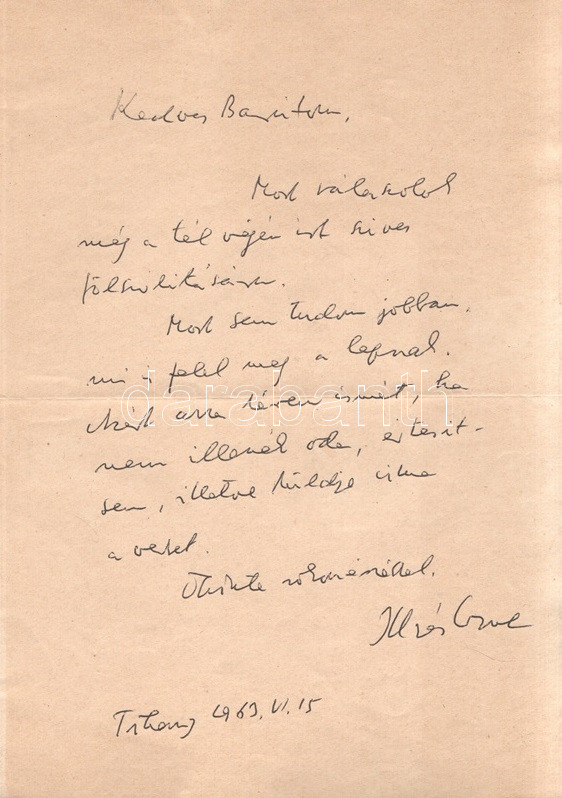 Kedves Barátom,
Most válaszolok
még a tél végén írt szíves
fölszólítására.
Most sem tudom jobban,
mi felel meg a lapnak.
Ezért arra kérem ismét, ha
nem illenék oda, értesít-
sen, illetve küldje
a verset.
Őszinte
Illyés Gyula
Tihany 1963. VI. 15
darabanth